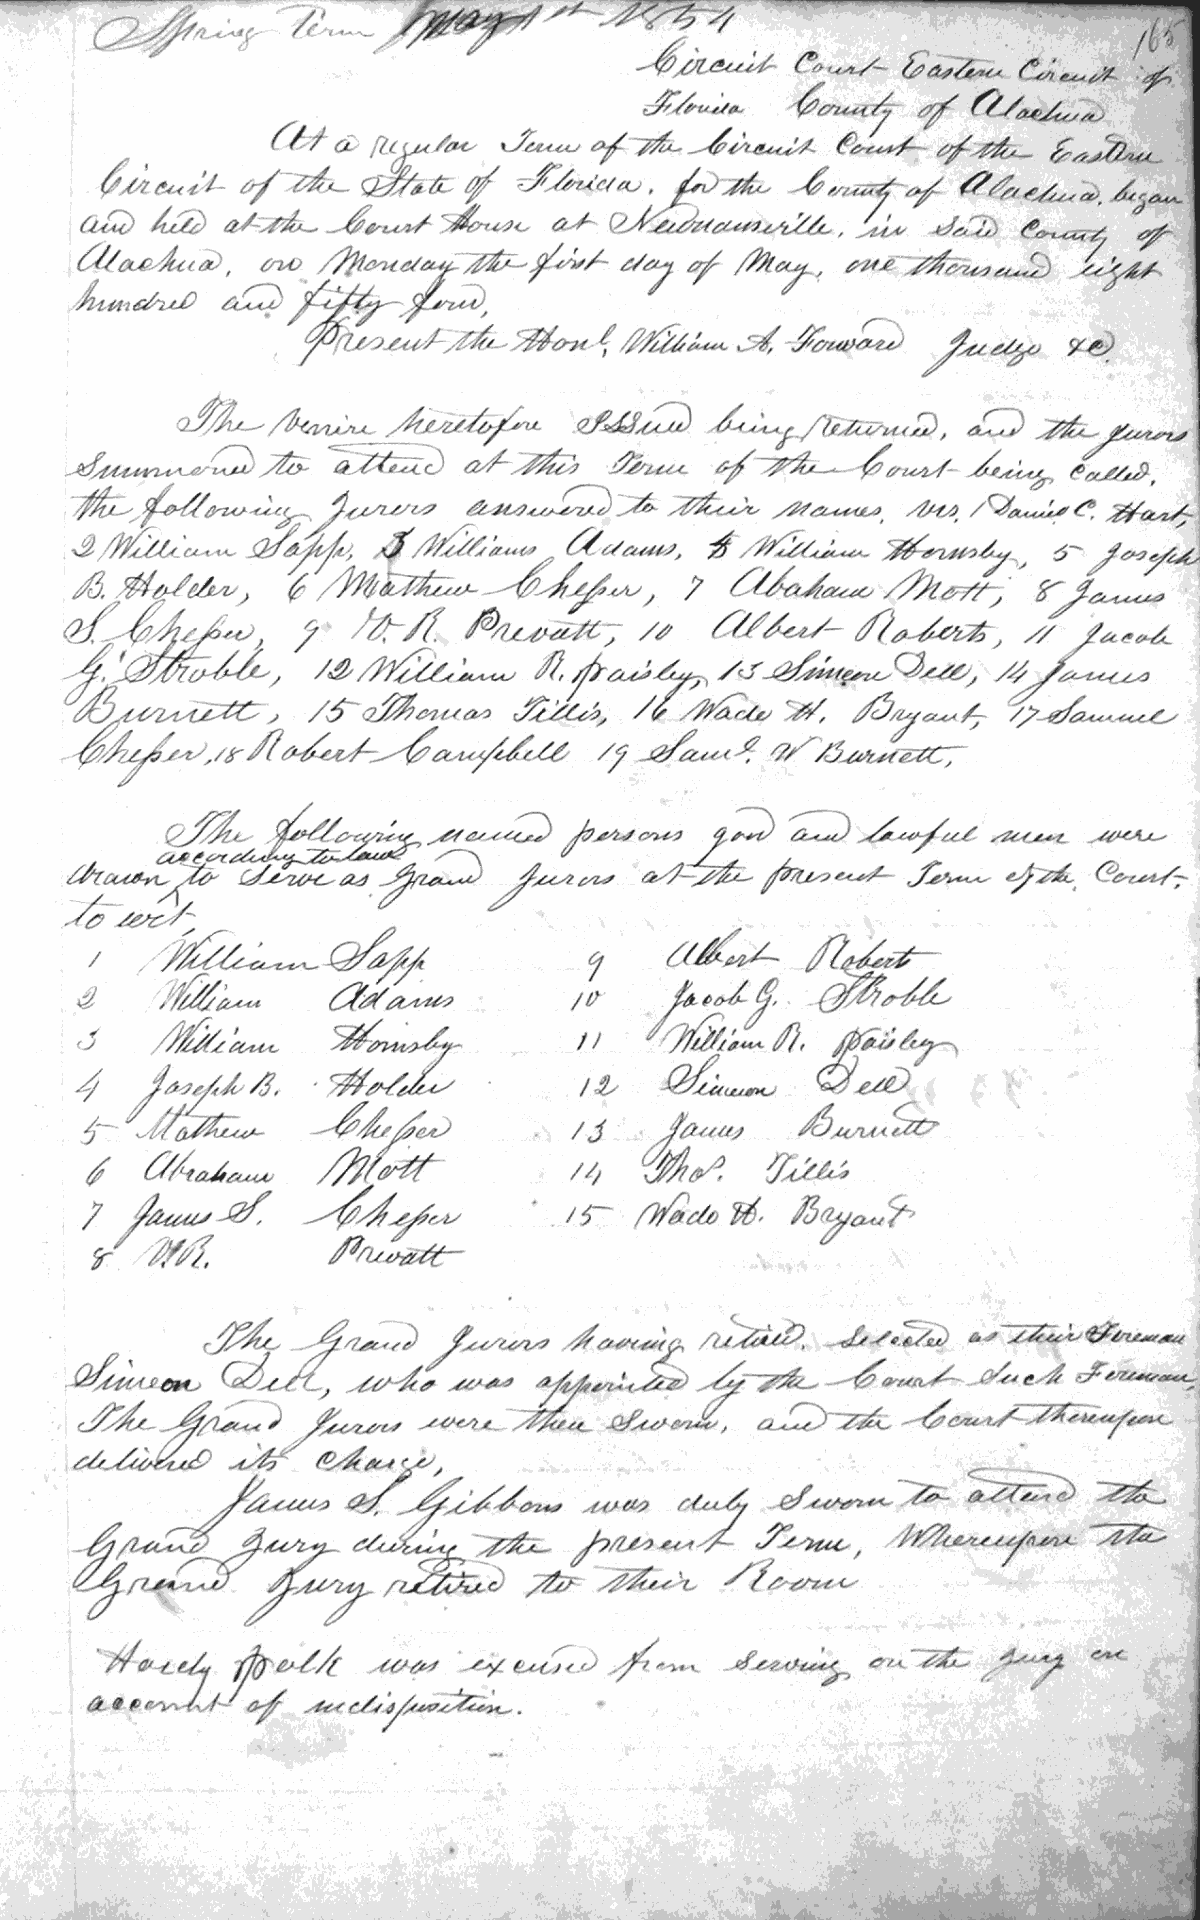 Spring Term May 1st 1854
165
Circuit Court Eastern Circuit of
Florida County of Alachua
At a regular Term of the Circuit Court of the Eastern
Circuit of the State of Florida, for the County of Alachua, began
and held at the Court House at Newnansville, in said County of
Alachua, on Monday the first day of May, one thousand eight
hundred and fifty four,
Present the Honl. William A. Forward Judge &c.
The venire heretofore issued being returned, and the jurors
Summoned to attend at this Term of the Court being called,
the following Jurors answered to their names, viz, 1 Daniel C. Hart,
2 William Sapp, 3 Williams Adams, 4 William Hornsby, 5 Joseph
B. Holder, 6 Mathew Chesser, 7 Abaham Mott, 8 James
S. Chesser, 9 V. R. Prevatt, 10 Albert Roberts, 11 Jacob
G. Stroble, 12 William R. Paisley, 13 Simeon Dell, 14 James
Burnett, 15 Thomas Tillis, 16 Wade H. Bryant, 17 Samuel
Chesser, 18 Robert Campbell 19 Saml. W Burnett,
The following named persons good and lawful men were
according to law
drawn to serve as Grand Jurors at the present Term of the Court,
to wit,
1 William Sapp 9 Albert Roberts
2 William Adams 10 Jacob G. Stroble
3 William Hornsby 11 William R. Paisley
4 Joseph B. Holder 12 Simeon Dell
5 Mathew Chesser 13 James Burnett
6 Abraham Mott 14 Thos. Tillis
7 James S. Chesser 15 Wade H. Bryant
8 V. R. Prevatt
The Grand Jurors having retired, selected as their Foreman
Simeon Dell, who was appointed by the Court such Foreman,
The Grand Jurors were then Sworn, and the Court thereupon
delivered its charge,
James S. Gibbons was duly Sworn to attend the
Grand Jury during the present Term, Whereupon the
Grand Jury retired to their Room
Hardy Polk was excused from serving on the jury on
account of indisposition.